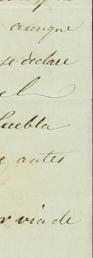 aunque
se declare
el
Puebla
antes
r via de